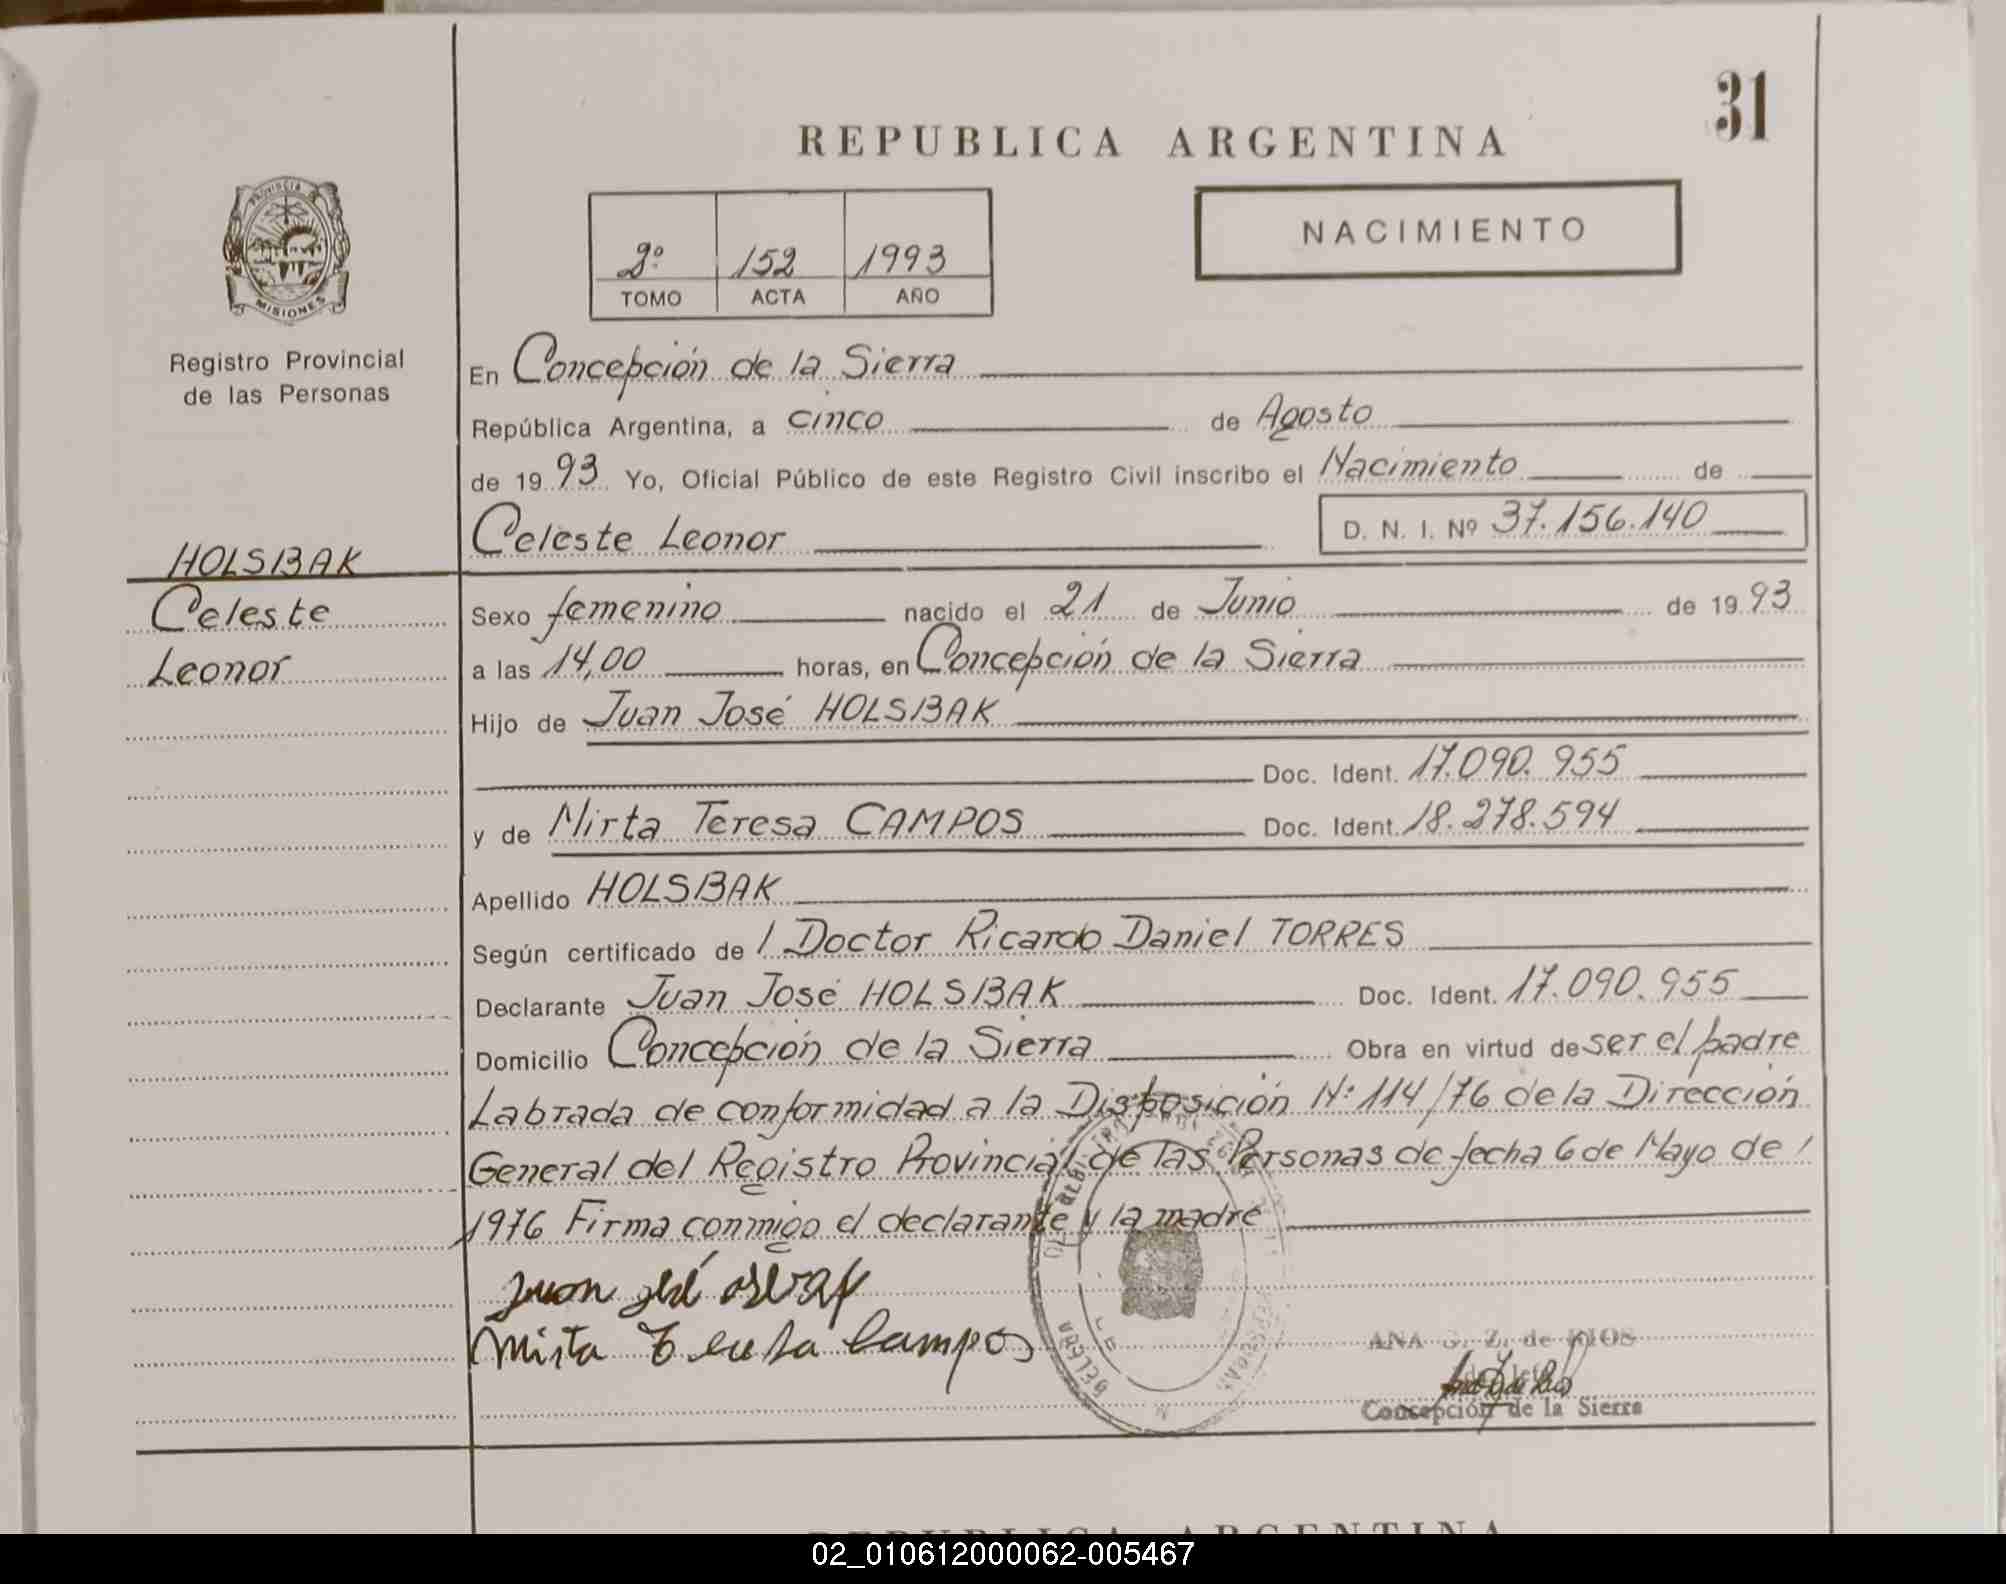 31
REPUBLICA ARGENTINA
PROVINCIA DE
MISIONES
2º 152 1993
TOMO ACTA AÑO
NACIMIENTO
Registro Provincial
de las Personas
En Concepción de la Sierra
República Argentina, a cinco de Agosto
de 1993 Yo, Oficial Público de este Registro Civil inscribo el Nacimiento de
Celeste Leonor D. N. I. Nº 37.156.140
HOLSBAK
Celeste
Leonor
Sexo femenino nacido el 21 de Junio de 1993
a las 14,00 horas, en Concepción de la Sierra
Hijo de Juan José HOLSBAK
Doc. Ident. 17.090.955
y de Mirta Teresa CAMPOS Doc. Ident. 18.278.594
Apellido HOLSBAK
Según certificado de l Doctor Ricardo Daniel TORRES
Declarante Juan José HOLSBAK Doc. Ident. 17.090.955
Domicilio Concepción de la Sierra Obra en virtud de ser el padre
Labrada de conformidad a la Disposición Nº 114/76 de la Dirección
General del Registro Provincial de las Personas de fecha 6 de Mayo de /
1976 Firma conmigo el declarante y la madre
Juan José
Mirta Teresa Campos
ANA G. Z. de RIOS
Concepción de la Sierra
REPUBLICA ARGENTINA
02_010612000062-005467